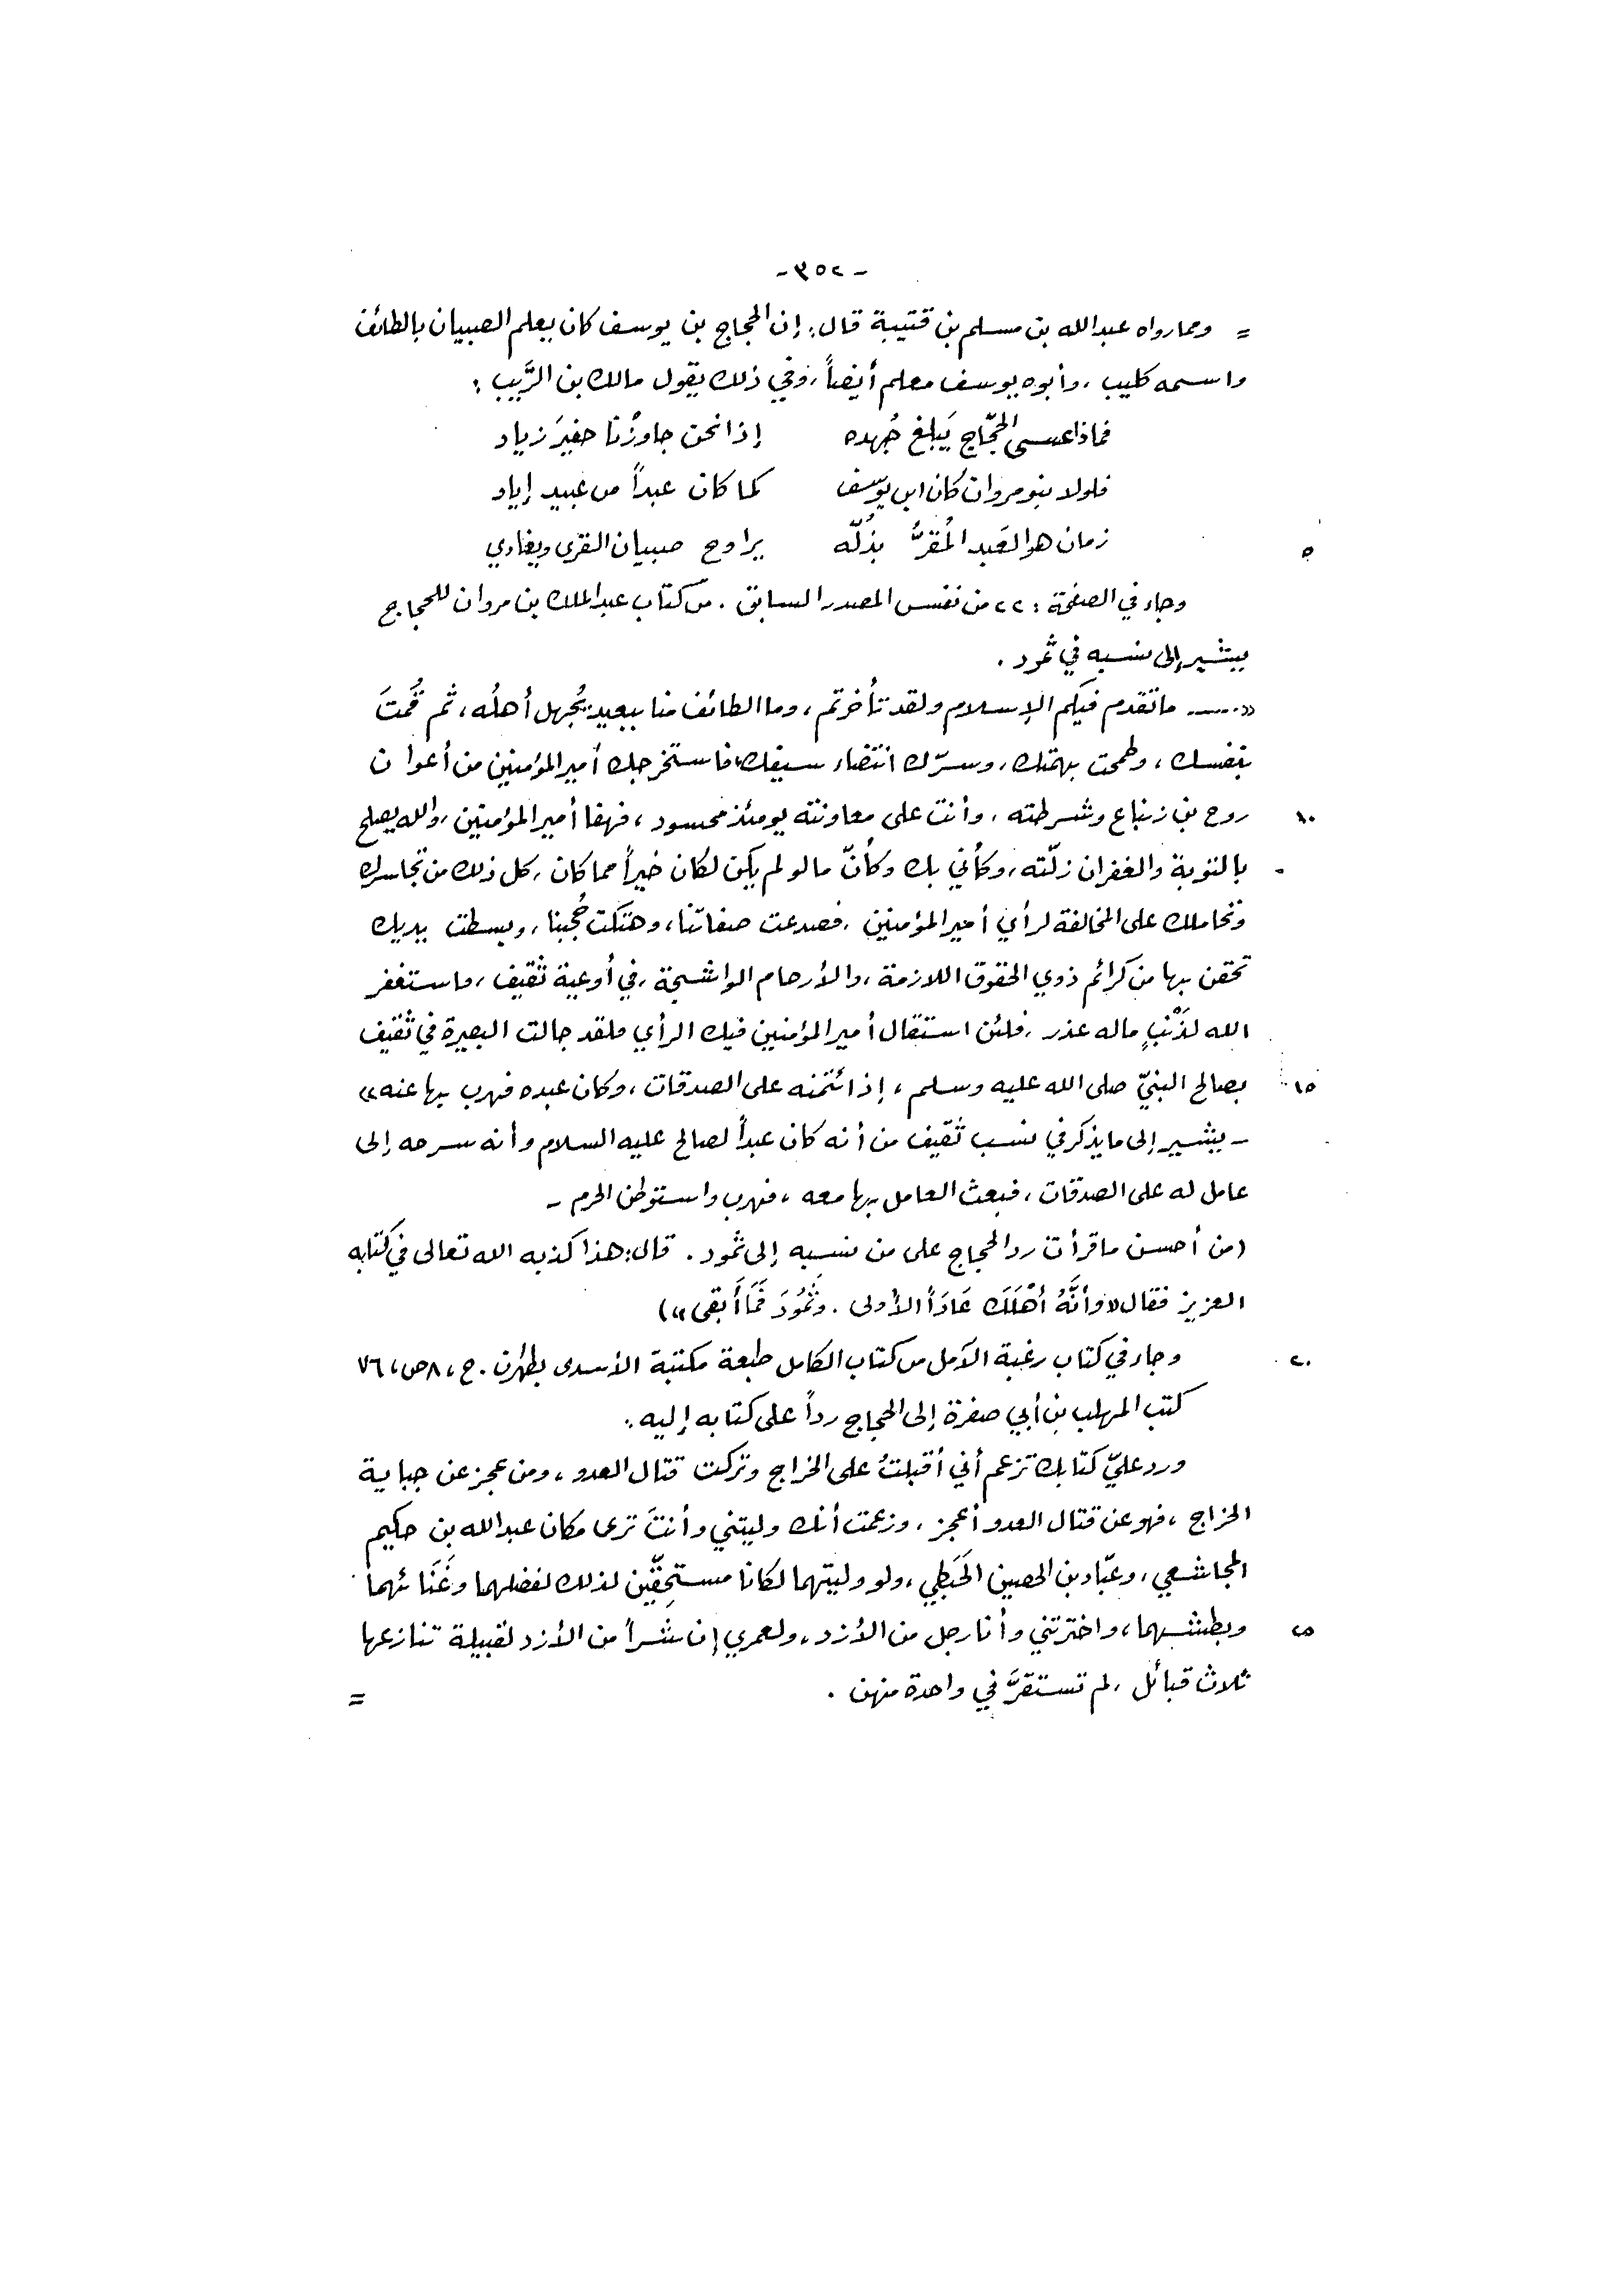 - ٣٥٢ -
= ومما رواه عبد الله بن مسلم بن قتيبة قال: إن الحجاج بن يوسف كان يعلم الصبيان بالطائف
واسمه كليب، وأبوه يوسف معلم أيضاً، وفي ذلك يقول مالك بن الرَّيب:
فماذا عسى الحجّاج يَبلغ جُهده إذا نحن جاوزْنا حفيرَ زياد
فلولا بنو مروان كان ابن يوسف كما كان عبداً من عبيد إياد
زمان هو العَبد المُقرُّ بذُلّه يراوح صبيان القرى ويغادي ٥
وجاء في الصفحة: ٢٢ من نفس المصدر السابق. من كتاب عبد الملك بن مروان للحجاج
يشير إلى نسبه في ثمود.
«...... ما تقدم فيكم الإسلام ولقد تأخرتم، وما الطائف منا ببعيد يُجهل أهلُه، ثم قُمتَ
بنفسك، وطمحت بهمتك، وسرّك انتضاء سيفك، فاستخرجك أمير المؤمنين من أعوان
روح بن زنباع وشرطته، وأنت على معاونته يومئذ محسود، فهفا أمير المؤمنين، والله يصلح ١٠
بالتوبة والغفران زلّته، وكأني بك وكأنّ ما لو لم يكن لكان خيراً مما كان، كل ذلك من تجاسرك
وتحاملك على المخالفة لرأي أمير المؤمنين، فصدعت صفاتنا، وهتكت حُجبنا، وبسطت يديك
تحقن بها من كرائم ذوي الحقوق اللازمة، والأرحام الواشجة، في أوعية ثقيف، فاستغفر
الله لذَنْبٍ ماله عذر، فلئن استقال أمير المؤمنين فيك الرأي فلقد جالت البصيرة في ثقيف
بصالح النبيّ صلى الله عليه وسلم، إذ ائتمنه على الصدقات، وكان عبده فهرب بها عنه» ١٥
- يشير إلى ما يذكر في نسب ثقيف من أنه كان عبداً لصالح عليه السلام وأنه سرحه إلى
عامل له على الصدقات، فبعث العامل بها معه، فهرب واستوطن الحرم -
(من أحسن ما قرأت رد الحجاج على من نسبه إلى ثمود. قال: هذا كذبه الله تعالى في كتابه
العزيز فقال «وأَنَّهُ أَهْلَكَ عَادَاً الأُولى. وثَمُودَ فَمَا أَبقى»)
وجاء في كتاب رغبة الآمل من كتاب الكامل طبعة مكتبة الأسدى بطهرن. ج، ٨ ص، ٧٦ ٢٠
كتب المهلب بن أبي صفرة إلى الحجاج رداً على كتابه إليه:
ورد عليّ كتابك تزعم أني أقبلتُ على الخراج وتركت قتال العدو، ومن عجز عن جباية
الخراج، فهو عن قتال العدو أعجز، وزعمت أنك وليتني وأنتَ ترى مكان عبد الله بن حكيم
المجاشعي، وعبّاد بن الحصين الحَبَطِي، ولو وليتهما لكانا مستحِقّين لذلك لفضلهما وغَنَائهما
وبطشهما، واخترتني وأنا رجل من الأزد، ولعمري إن شراً من الأزد لقبيلة تنازعها ٢٥
ثلاث قبائل، لم تستقرَّ في واحدة منهن. =